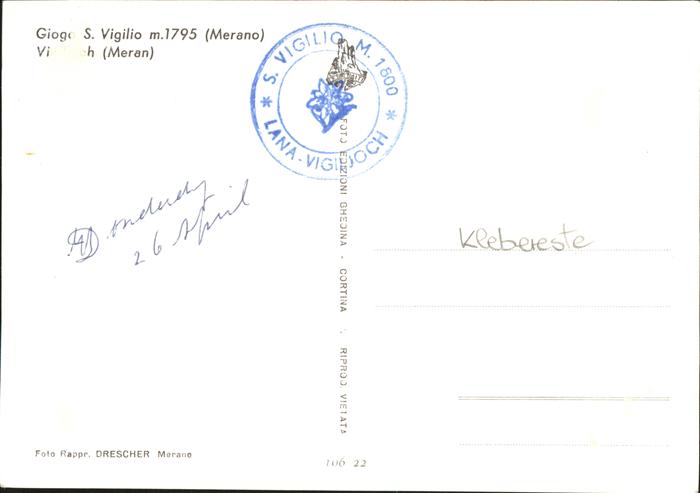 Giogo S. Vigilio m.1795 (Merano)
Vi h (Meran)
* S. VIGILIO M. 1800 *
LANA-VIGILJOCH
26 April
Klebereste
FOTO EDIZIONI GHEDINA - CORTINA - RIPROD. VIETATA
Foto Rappr. DRESCHER Merano
106 22